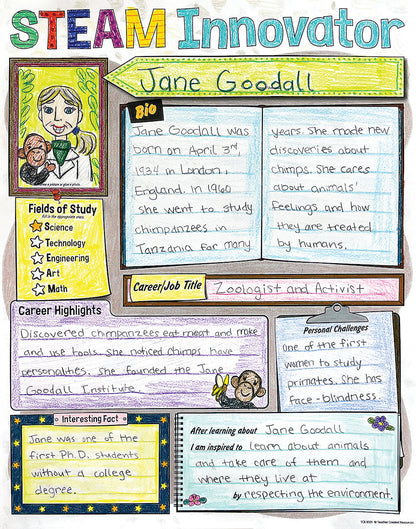 STEAM Innovator
Jane Goodall
Bio
Jane Goodall was
born on April 3rd,
1934 in London,
England. In 1960
she went to study
chimpanzees in
Tanzania for many
years. She made new
discoveries about
chimps. She cares
about animals'
feelings and how
they are treated
by humans.
Draw a picture or glue a photo.
Fields of Study
fill in the appropriate stars
Science
Technology
Engineering
Art
Math
Career/Job Title
Zoologist and Activist
Career Highlights
Discovered chimpanzees eat meat and make
and use tools. She noticed chimps have
personalities. She founded the Jane
Goodall Institute.
Personal Challenges
One of the first
women to study
primates. She has
face-blindness.
Interesting Fact
Jane was one of the
first Ph.D. students
without a college
degree.
After learning about Jane Goodall
I am inspired to learn about animals
and take care of them and
where they live at
by respecting the environment.